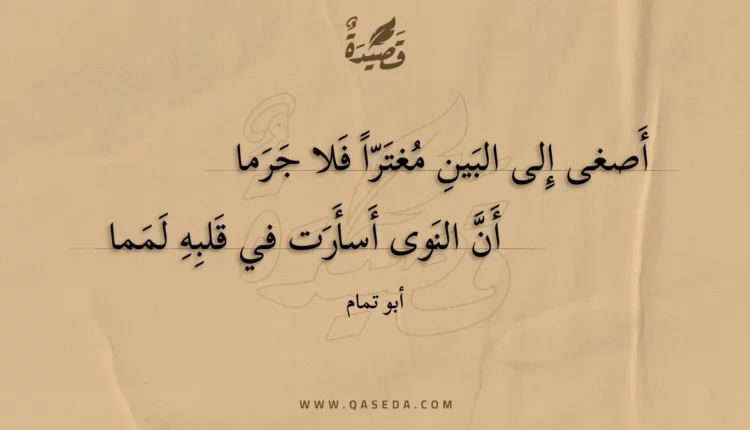 قَصِيْدَةٌ
أَصغى إِلى البَينِ مُغتَرّاً فَلا جَرَما
أَنَّ النَوى أَسأَرَت في قَلبِهِ لَمَما
أبو تمام
WWW.QASEDA.COM